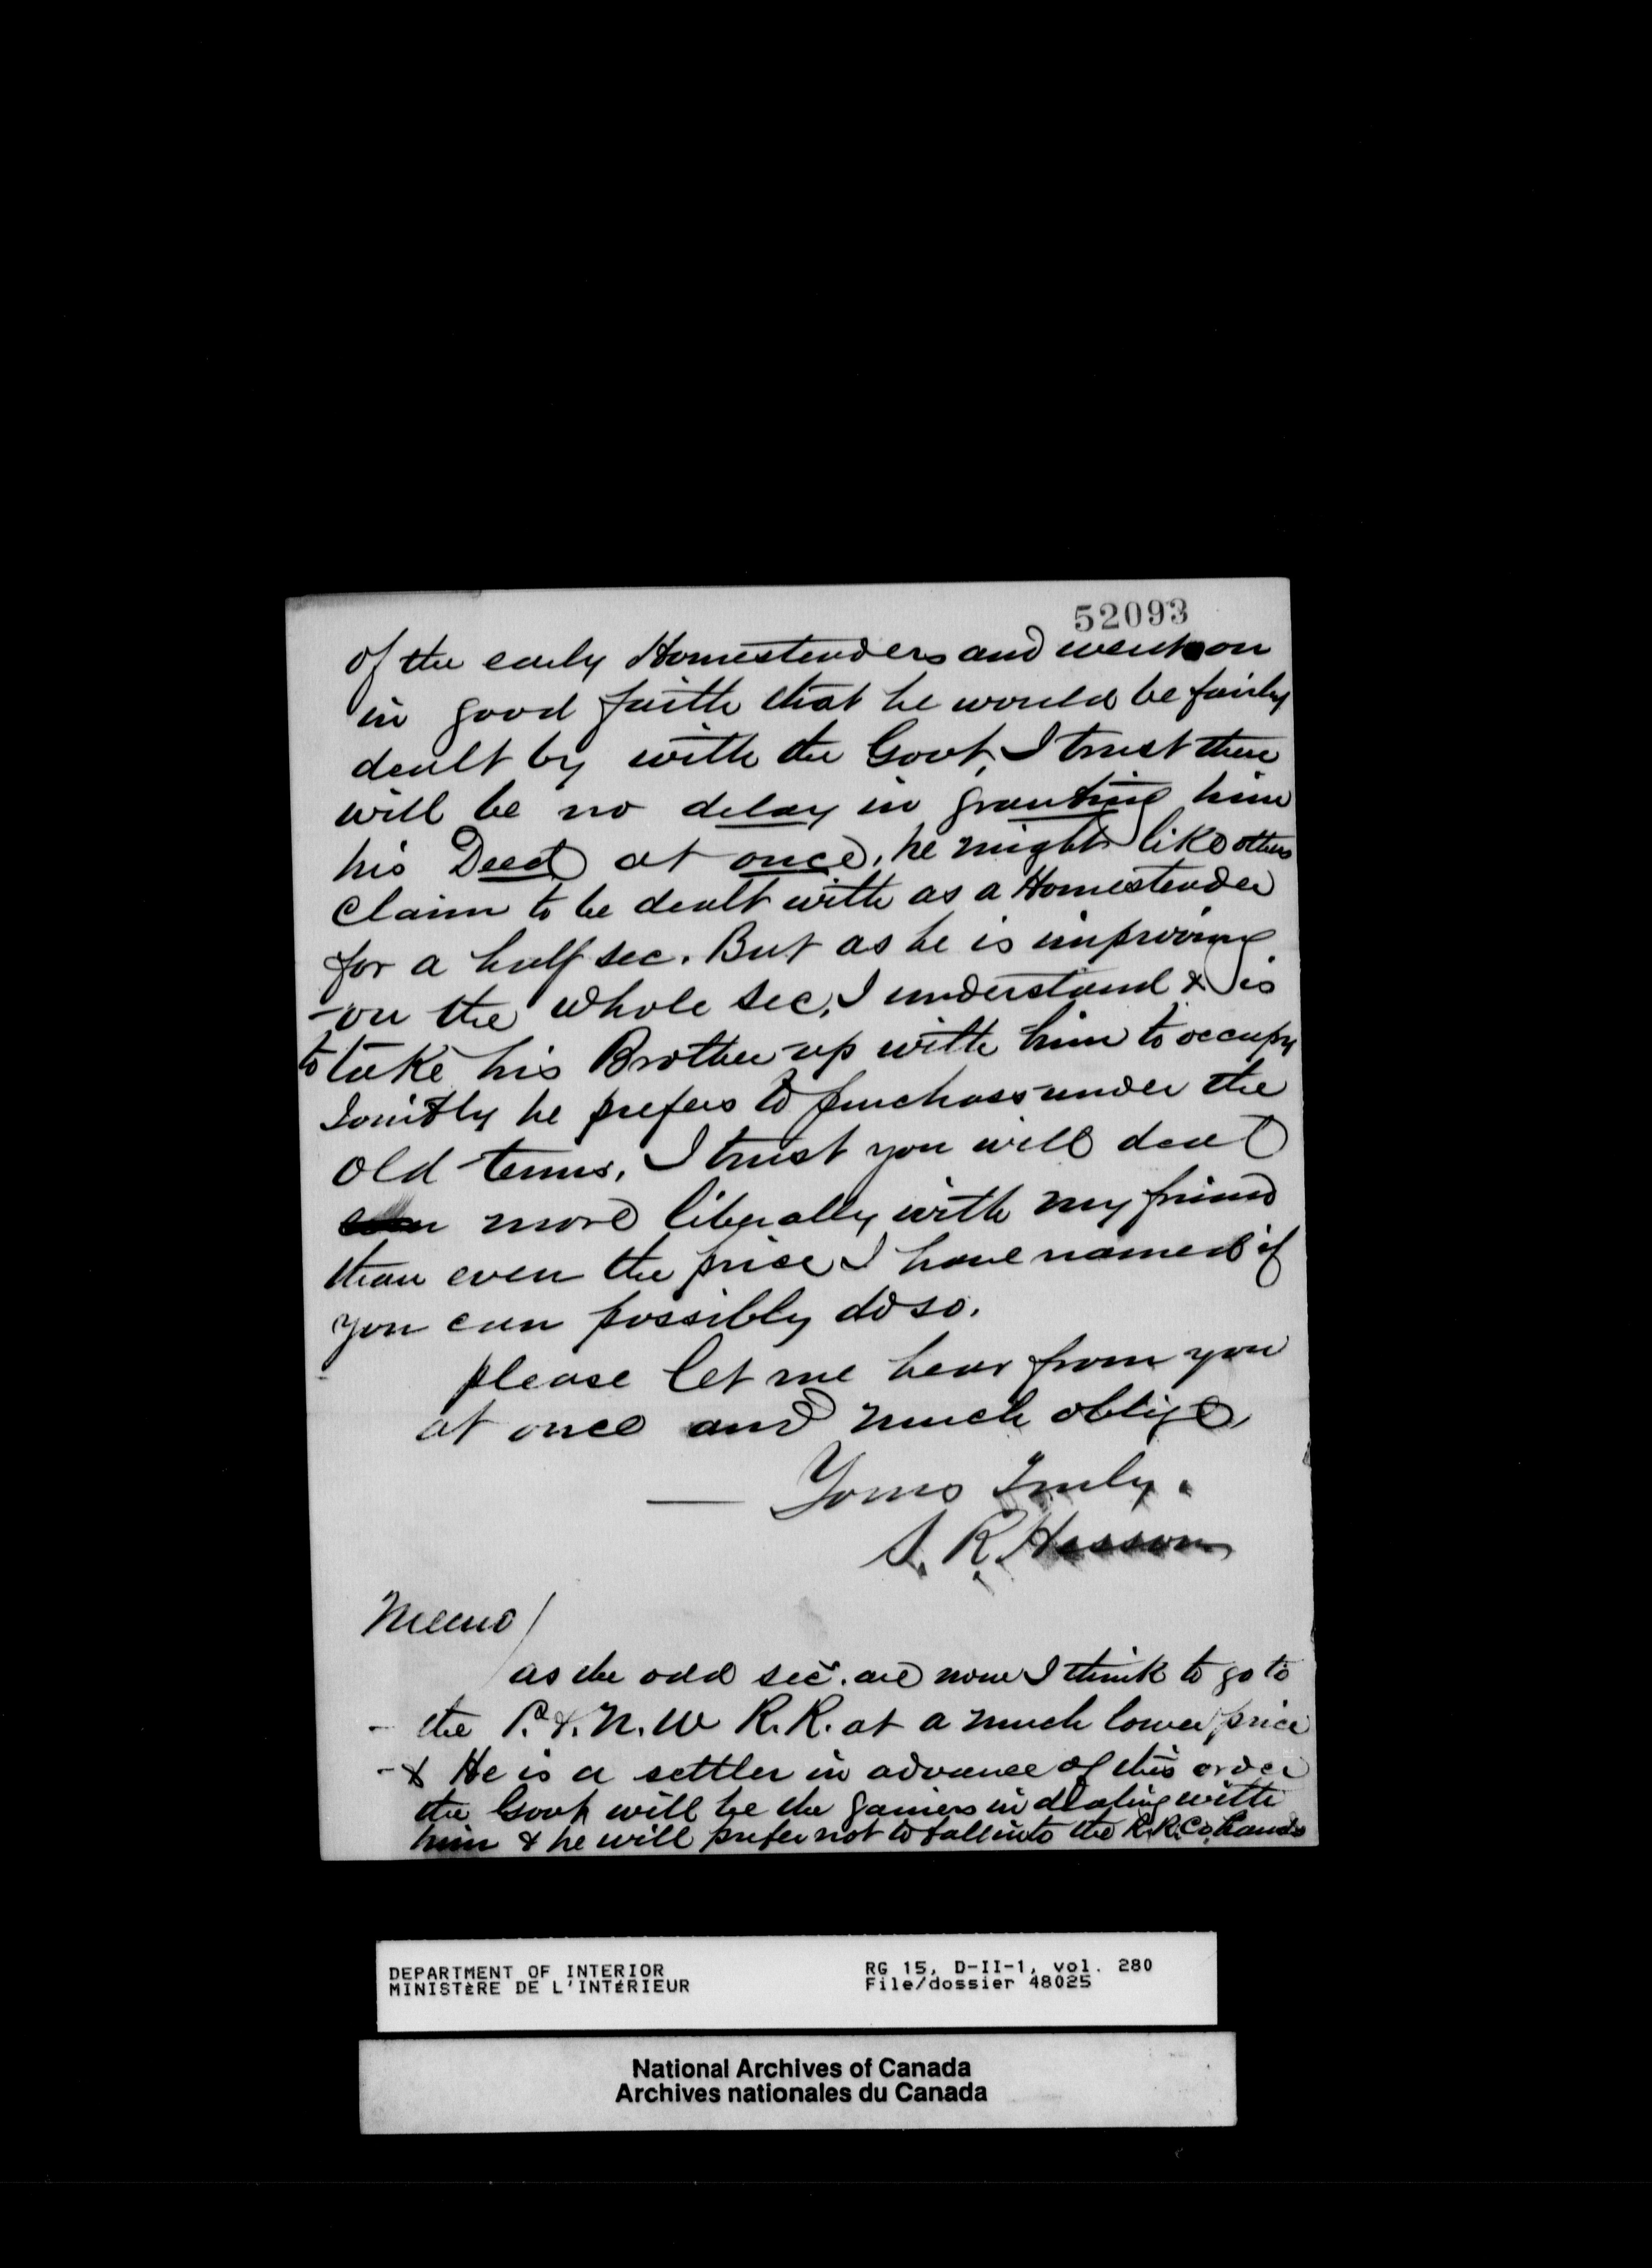 52093
of the early Homesteaders and went on
in good faith that he would be fairly
dealt by with the Govt, I trust there
will be no delay in granting him
his Deed at once, he might like others
claim to be dealt with as a Homesteader
for a half sec. But as he is improving
on the whole sec, I understand & is
to take his Brother up with him to occupy
Jointly he prefers to purchase under the
old terms, I trust you will deal
more liberally with my friend
than even the price I have named if
you can possibly do so.
please let me hear from you
at once and much oblige
Yours Truly.
S. R. Hesson
Memo/
as the odd sec. are now I think to go to
- the P. & N. W R. R. at a much lower price
- & He is a settler in advance of this order
the Govt will be the gainers in dealing with
him & he will prefer not to fall into the R.R. Co. hands
DEPARTMENT OF INTERIOR RG 15, D-II-1, vol. 280
MINISTÈRE DE L'INTÉRIEUR File/dossier 48025
National Archives of Canada
Archives nationales du Canada